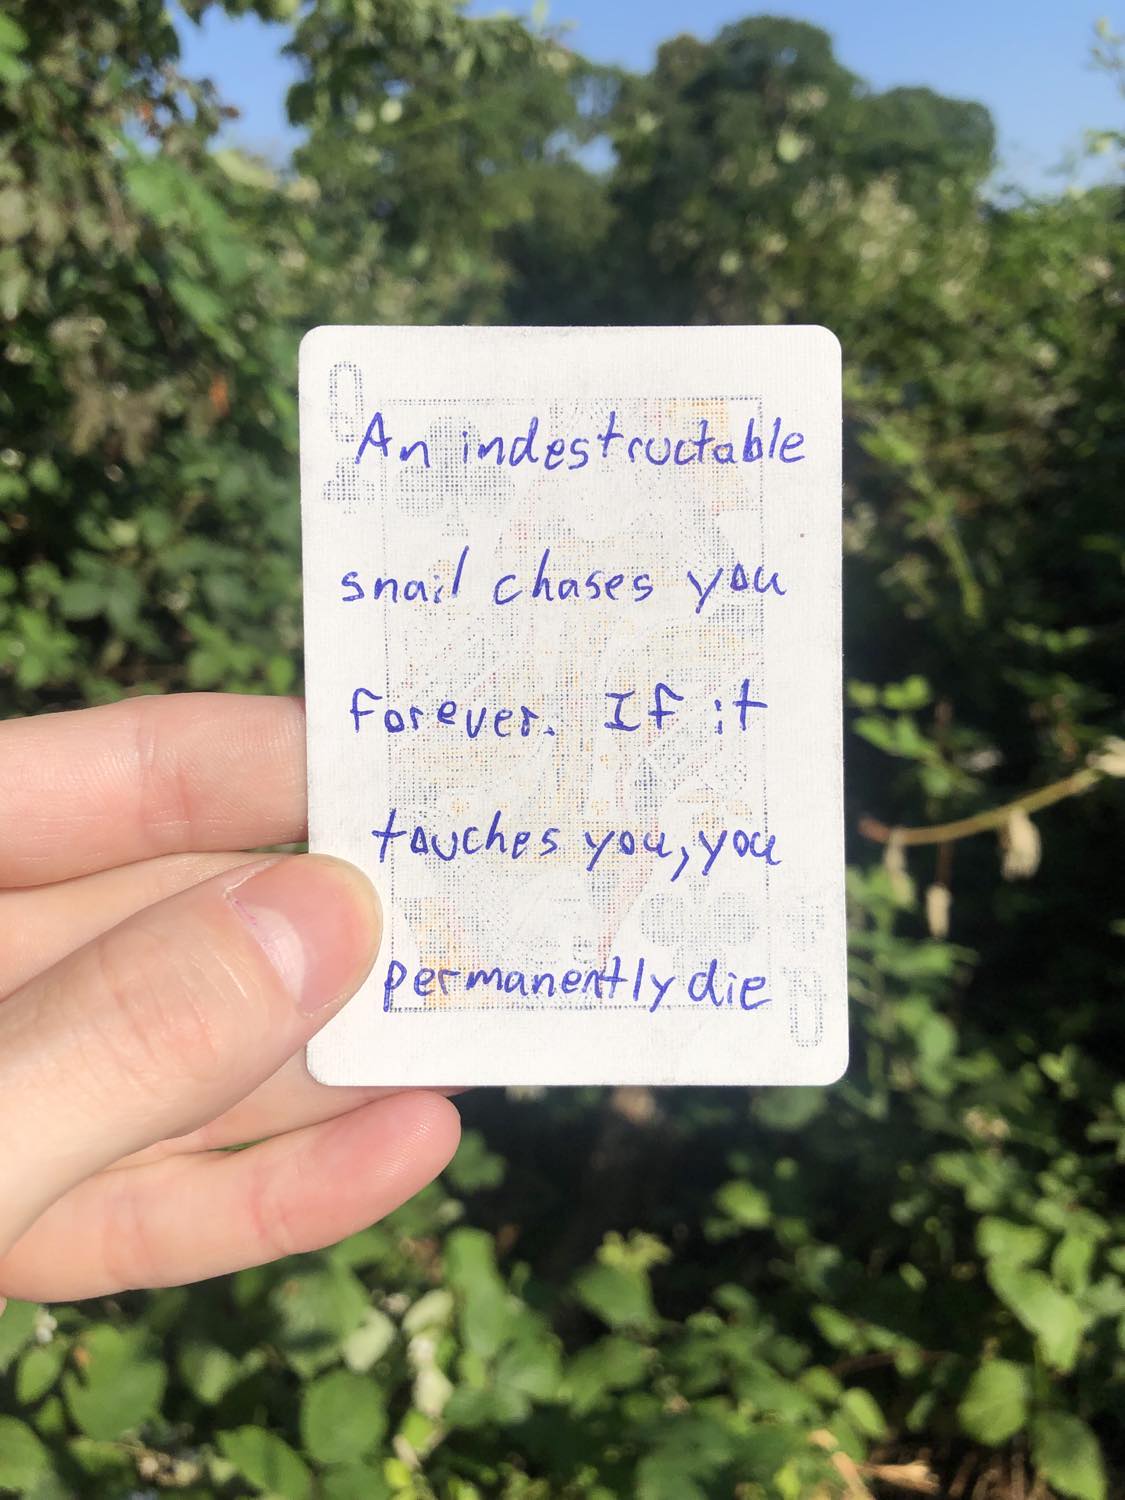 Q
An indestructable
snail chases you
forever. If it
touches you, you
permanently die
Q